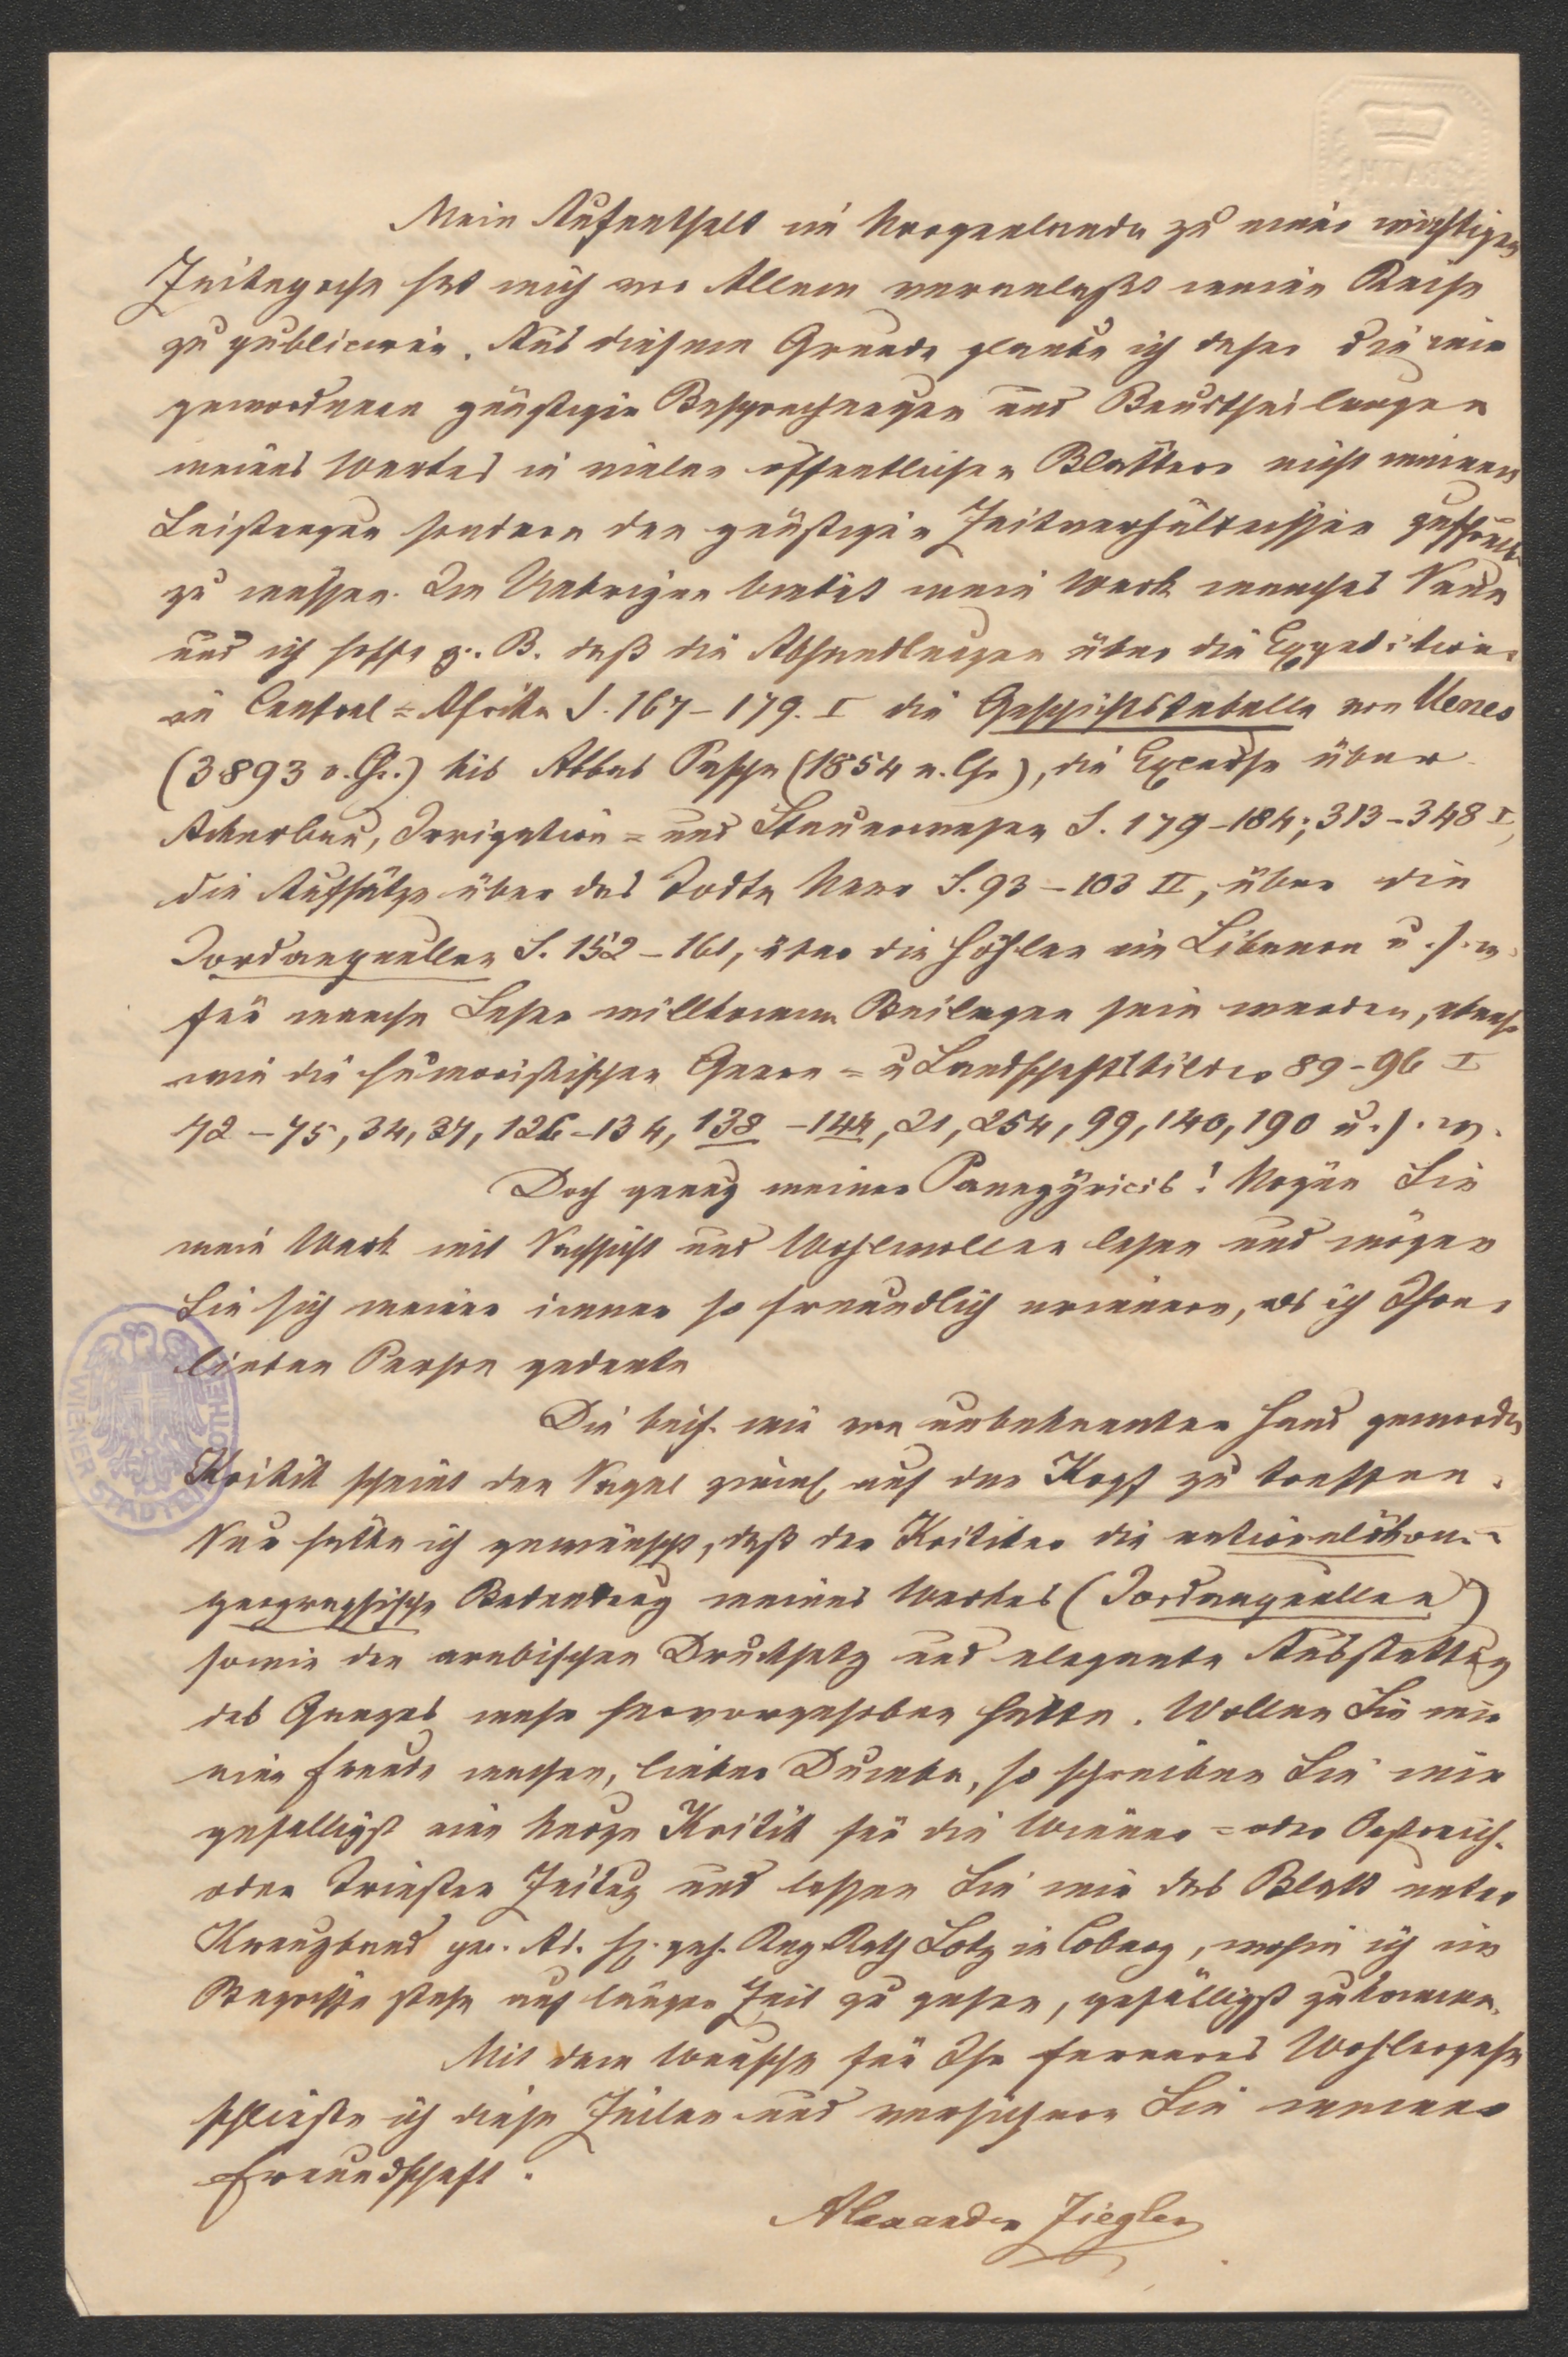 Mein Aufenthalt im Morgenlande zu einer wichtigen
Zeitepoche hat mich vor Allem veranlaßt meine Reise
zu publiciren. Aus diesem Grunde glaube ich daher die mir
gewordenen günstigen Besprechungen und Beurtheilungen
meines Werkes in vielen öffentlichen Blättern nicht meinen
Leistungen sondern den günstigen Zeitverhältnissen
zu messen. Im Uebrigen bietet mein Werk manches Neue
und ich hoffe z. B. daß die Abhandlungen über die Expeditionen
in Central=Afrika S. 167–179. I die Geschichtstabelle von Menes
(3893 v. Chr.) bis Abbas Pascha (1854 n. Chr), die Excurse über
Ackerbau, Irrigation= und Steuerwesen S. 179–184; 313–348 I,
die Aufsätze über das Todte Meer S. 93–103 II, über die
Jordanquellen S. 152–161, über die Höhlen im Libanon u. s. w.
für manche Leser willkommne Beilagen sein werden, ebenso
wie die humoristischen Genre= u Landschaftsbilder 89–96 I
72–75, 34, 37, 126–134, 138–144, 21, 254, 99, 140, 190 u. s. w.
Doch genug meiner Panegÿricis! Mögen Sie
mein Werk mit Nachsicht und Wohlwollen lesen und mögen
Sie sich meiner immer so freundlich erinnern, als ich Ihrer
lieben Person gedenke
Die beif. mir von unbekannter Hand gewordne
Kritik scheint den Nagel ziemlich auf den Kopf zu treffen.
Nur hätte ich gewünscht, daß der Kritiker die nationalökon.-
geographische Bedeutung meines Werkes (Jordanquellen)
sowie den arabischen Drucksatz und elegante Ausstattung
des Ganzes mehr hervorgehoben hätte. Wollen Sie mir
eine Freude machen, lieber Dumba, so schreiben Sie mir
gefälligst eine kurze Kritik für die Wiener= oder Oestreich.
oder Triester Zeitung und lassen Sie mir das Blatt unter
Kreuzband per. Ad. H. geh. Reg. Rath Lotz in Coburg, wohin ich im
Begriffe stehe auf längere Zeit zu gehen, gefälligst zukommen.
Mit dem Wunsche für Ihr ferneres Wohlergehn
schließe ich diese Zeilen und versichere Sie meiner
Freundschaft.
Alexander Ziegler
WIENER STADTBIBLIOTHEK
BATH